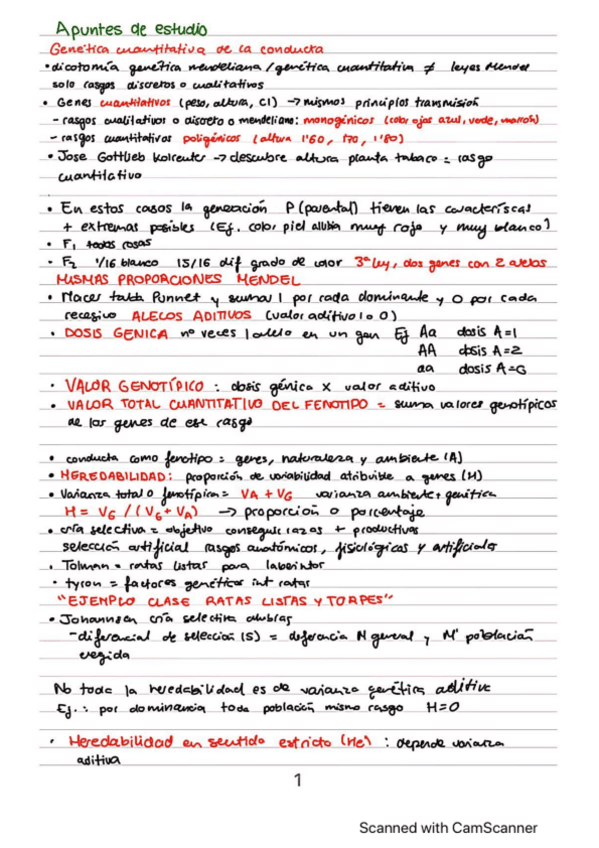 Apuntes de estudio
Genética cuantitativa de la conducta
• dicotomía genética mendeliana / genética cuantitativa ≠ leyes Mendel
solo rasgos discretos o cualitativos
• Genes cuantitativos (peso, altura, CI) → mismos principios transmisión
- rasgos cualitativos o discreto o mendeliano: monogénicos (color ojos azul, verde, marrón)
- rasgos cuantitativos poligénicos (altura 1'60, 170, 1'80)
• Jose Gottlieb Kolreuter → descubre altura planta tabaco = rasgo
cuantitativo
• En estos casos la generación P (parental) tienen las características
+ extremas posibles (Ej. color piel alubia muy rojo y muy blanco)
• F1 todas rosas
• F2 1/16 blanco 15/16 dif grado de color 3ª ley, dos genes con 2 alelos
MISMAS PROPORCIONES MENDEL
• Hacer tabla Punnet y suma 1 por cada dominante y 0 por cada
recesivo ALELOS ADITIVOS (valor aditivo 1 o 0)
• DOSIS GENICA nº veces 1 alelo en un gen Ej Aa dosis A=1
AA dosis A=2
aa dosis A=0
• VALOR GENOTÍPICO : dosis génica x valor aditivo
• VALOR TOTAL CUANTITATIVO DEL FENOTIPO = suma valores genotípicos
de los genes de ese rasgo
• conducta como fenotipo = genes, naturaleza y ambiente (A)
• HEREDABILIDAD: proporción de variabilidad atribuible a genes (H)
• Varianza total o fenotípica = VA + VG varianza ambiente + genética
H = VG / (VG + VA) → proporción o porcentaje
• cría selectiva = objetivo conseguir razas + productivas
selección artificial rasgos anatómicos, fisiológicos y artificiales
• Tolman = ratas listas para laberintos
• tyron = factores genéticos int ratas
"EJEMPLO CLASE RATAS LISTAS Y TORPES"
• Johannsen cría selectiva alubias
- diferencial de selección (S) = diferencia M general y M' población
elegida
No toda la heredabilidad es de varianza genética aditiva
Ej. : por dominancia toda población mismo rasgo H=0
• Heredabilidad en sentido estricto (He²) : depende varianza
aditiva
1
Scanned with CamScanner